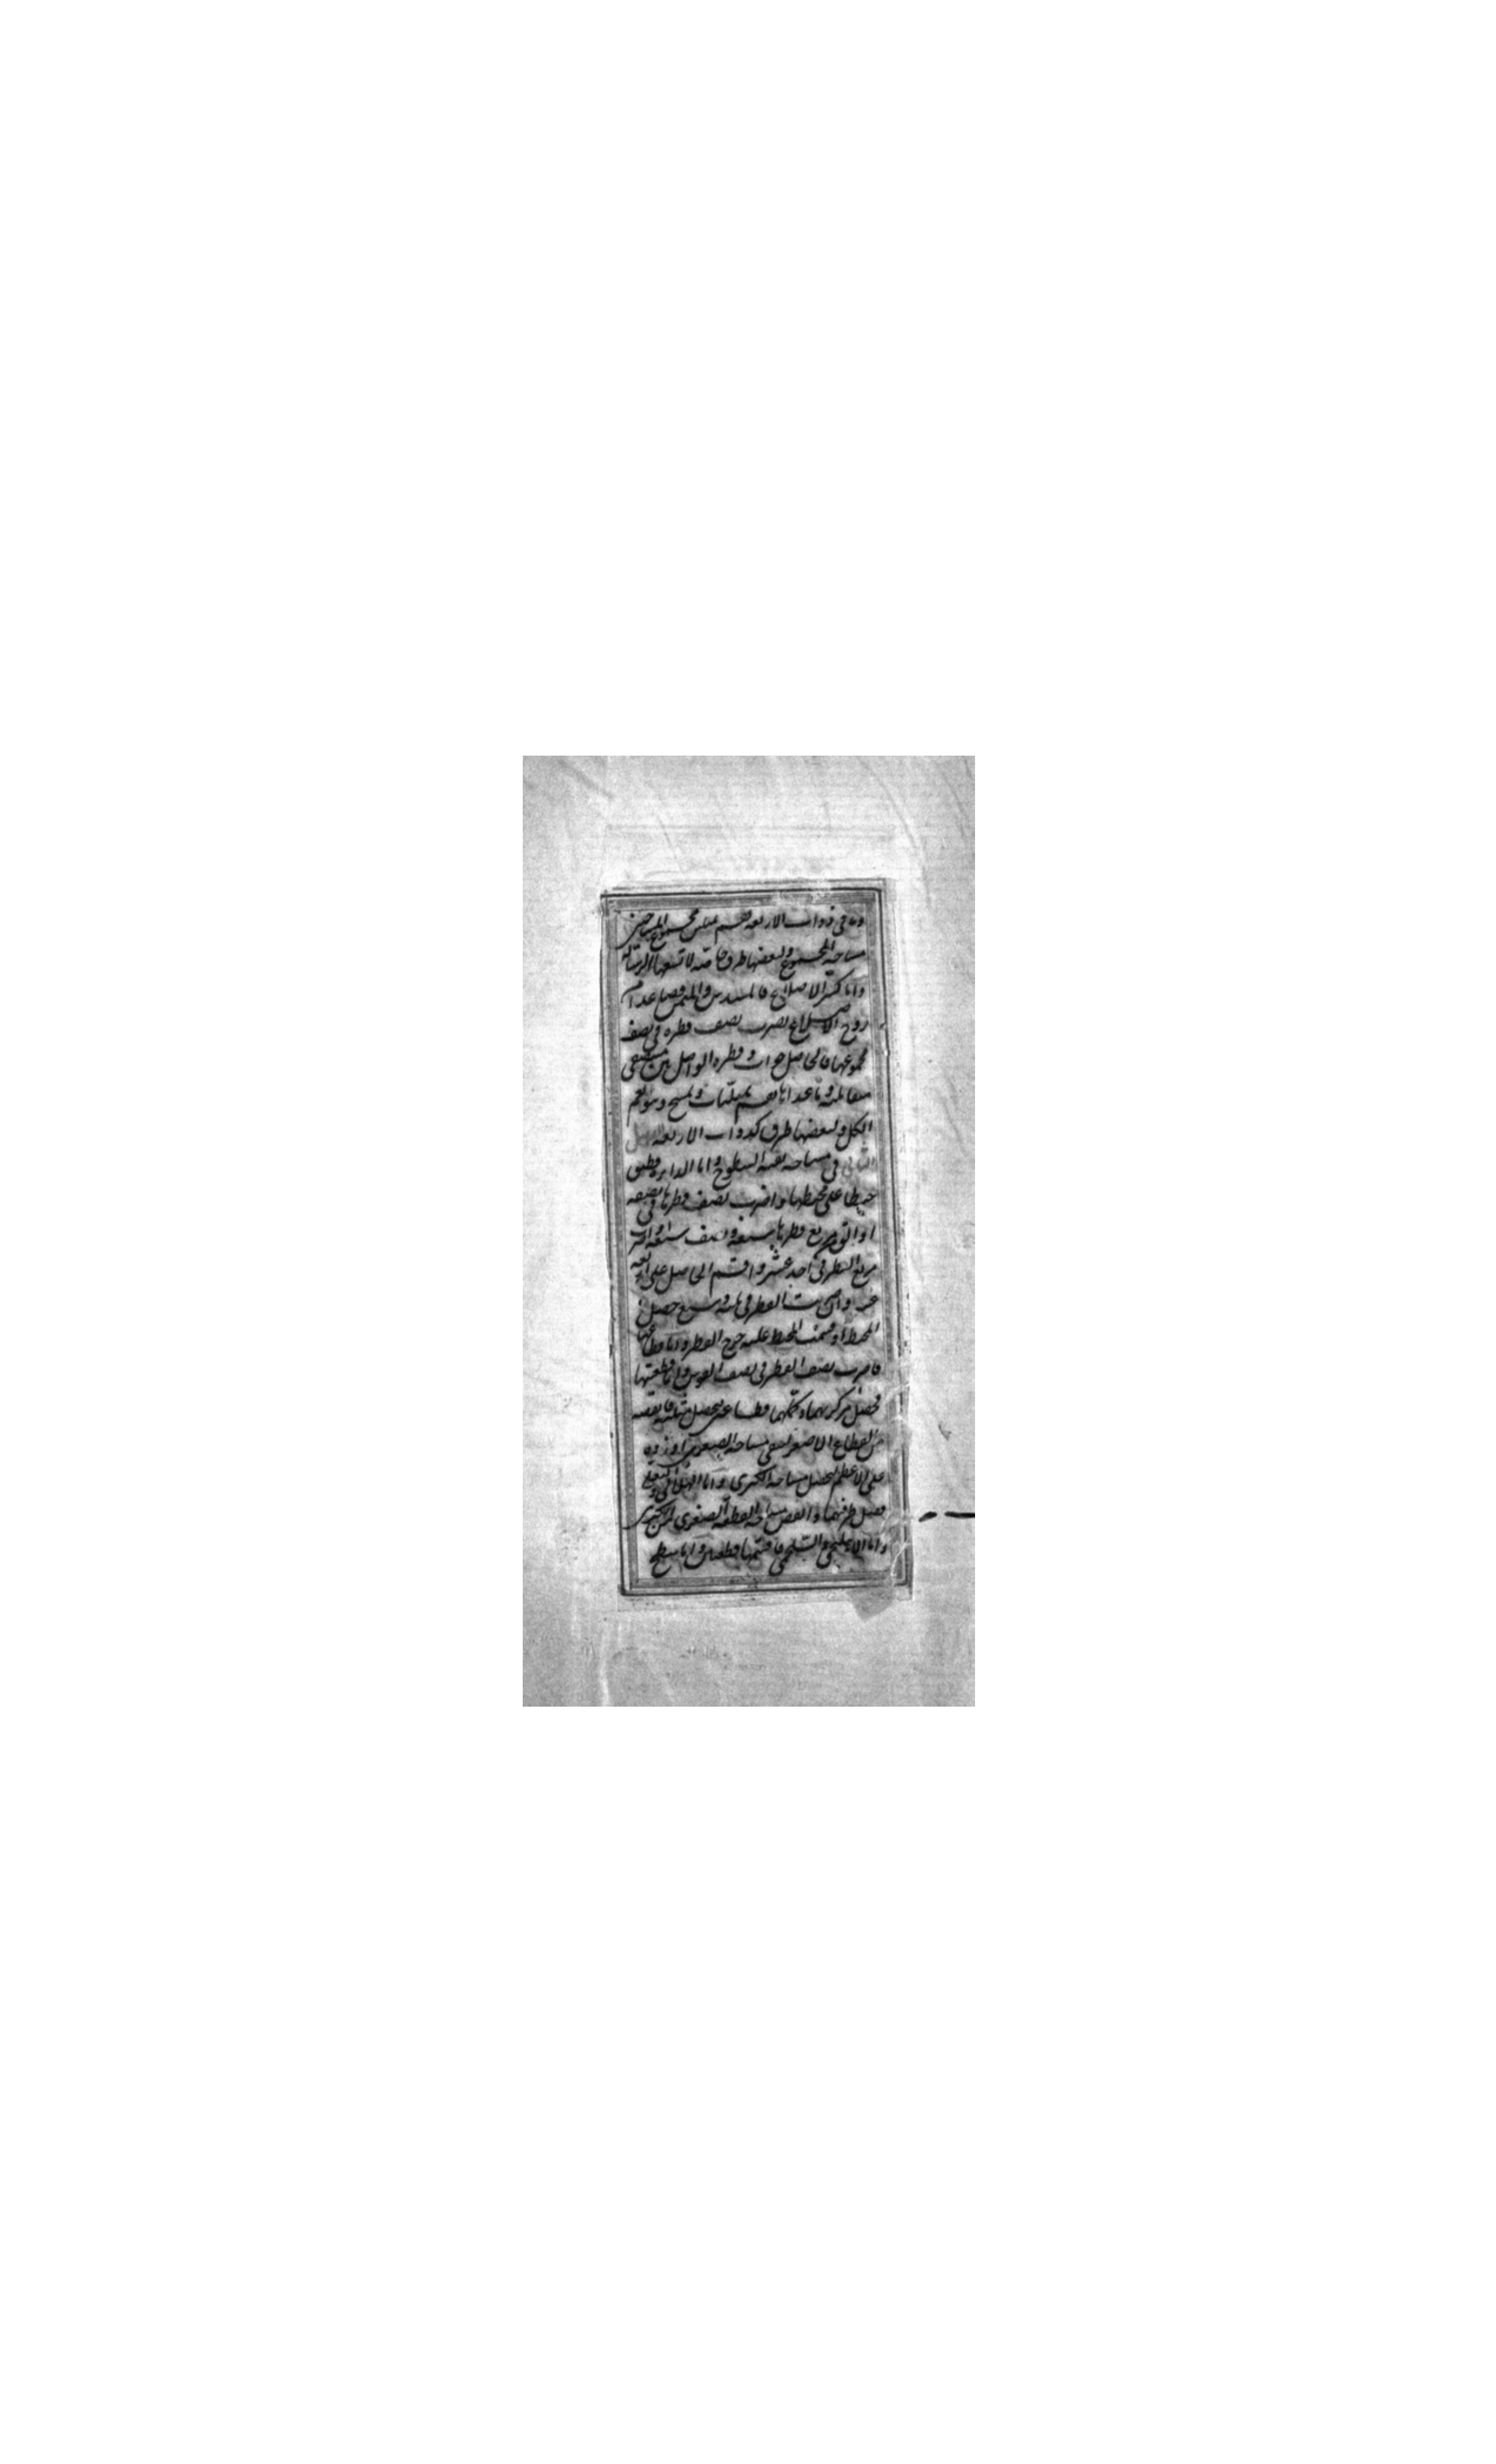 وباقي ذوات الاربعة تقسم بمثلثين فمجموع المساحتين
مساحة المجموع ولبعضها طرق خاصة لا تسعها الرسالة
واما كثير الاضلاع فالمسدس والمثمن فصاعدا من
زوج الاضلاع تضرب نصف قطره في نصف
مجموعها فالحاصل جواب وقطره الواصل بين منتصفي
متقابليه وما عداها تقسم بمثلثات وتمسح وهو يعم
الكل ولبعضها طرق كذوات الاربعة الفصل
الثاني في مساحة بقية السطوح واما الدايرة فطبق
خيطا على محيطها واضرب نصف قطرها في نصفه
او الق من مربع قطرها سبعه ونصف سبعه او اضرب
مربع القطر في احد عشر واقسم الحاصل على اربعة
عشر وان ضربت القطر في ثلثه وسبع حصل
المحيط او قسمت المحيط عليه خرج القطر واما قطاعها
فاضرب نصف القطر في نصف القوس واما قطعتها
فحصل مركزيهما وكملهما قطاعين ليحصل مثلث فانقصه
من القطاع الاصغر ليبقى مساحة الصغرى او زده
على الاعظم ليحصل مساحة الكبرى واما الهلالي والنعلي
فصل طرفيهما وانقص مساحة القطعة الصغرى من الكبرى
واما الاهليلجي والشلجمي فاقسمهما قطعتين واما سطح